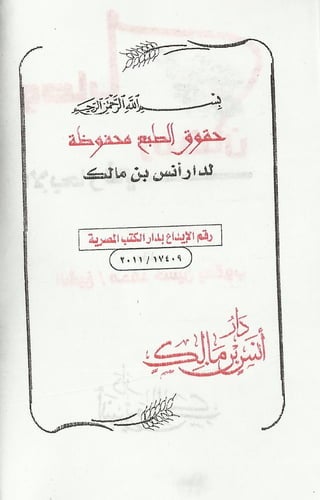 بسم الله الرحمن الرحيم
حقوق الطبع محفوظة
لدار أنس بن مالك
رقم الإيداع بدار الكتب المصرية
٢٠١١/١٧٤٠٩
دار
أنس بن مالك